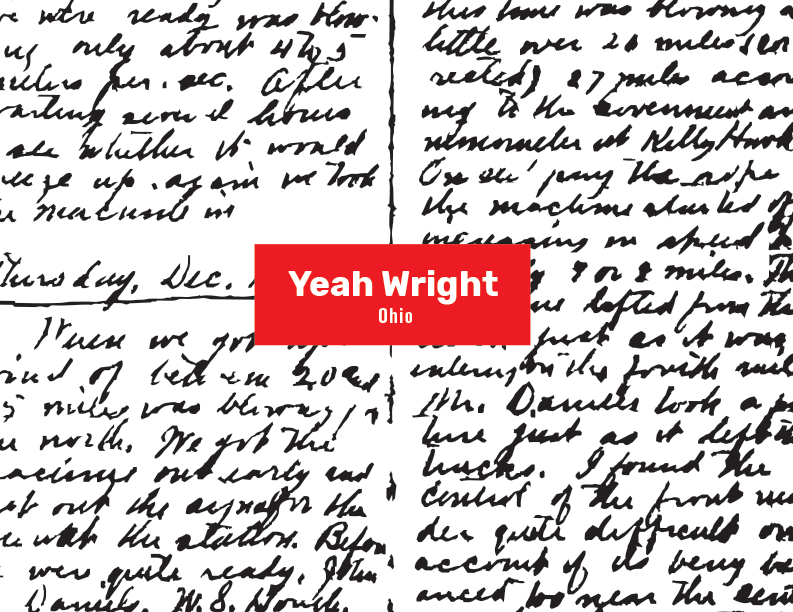 were ready was blow-
only about 4 to 5
per. sec. After
several hours
see whether it would
up again we took
machine in
Thursday, Dec.
When we got
wind of between 20 and
miles was blowing
north. We got the
machine out early and
out the signal for the
the station. Before
were quite ready, John
Daniels, W.S. Dough,
this time was blowing a
little over 20 miles
27 miles
to the Government
anemometer at Kitty Hawk
On the rope
the machine started off
in speed
7 or 8 miles. The
lifted from the
just as it was
entering on the fourth
Mr. Daniels took a
just as it left the
tracks. I found the
control of the front
quite difficult on
account of its being
too near the
Yeah Wright
Ohio